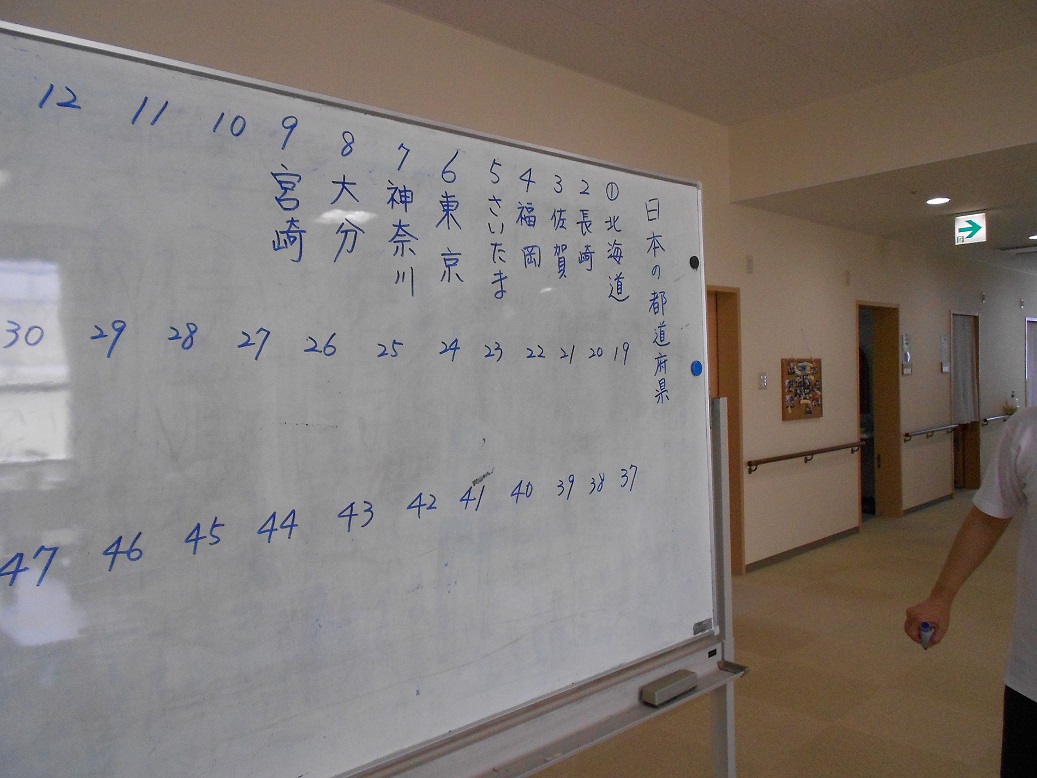 日本の都道府県
① 北海道
2 長崎
3 佐賀
4 福岡
5 さいたま
6 東京
7 神奈川
8 大分
9 宮崎
10
11
12
19
20
21
22
23
24
25
26
27
28
29
30
37
38
39
40
41
42
43
44
45
46
47